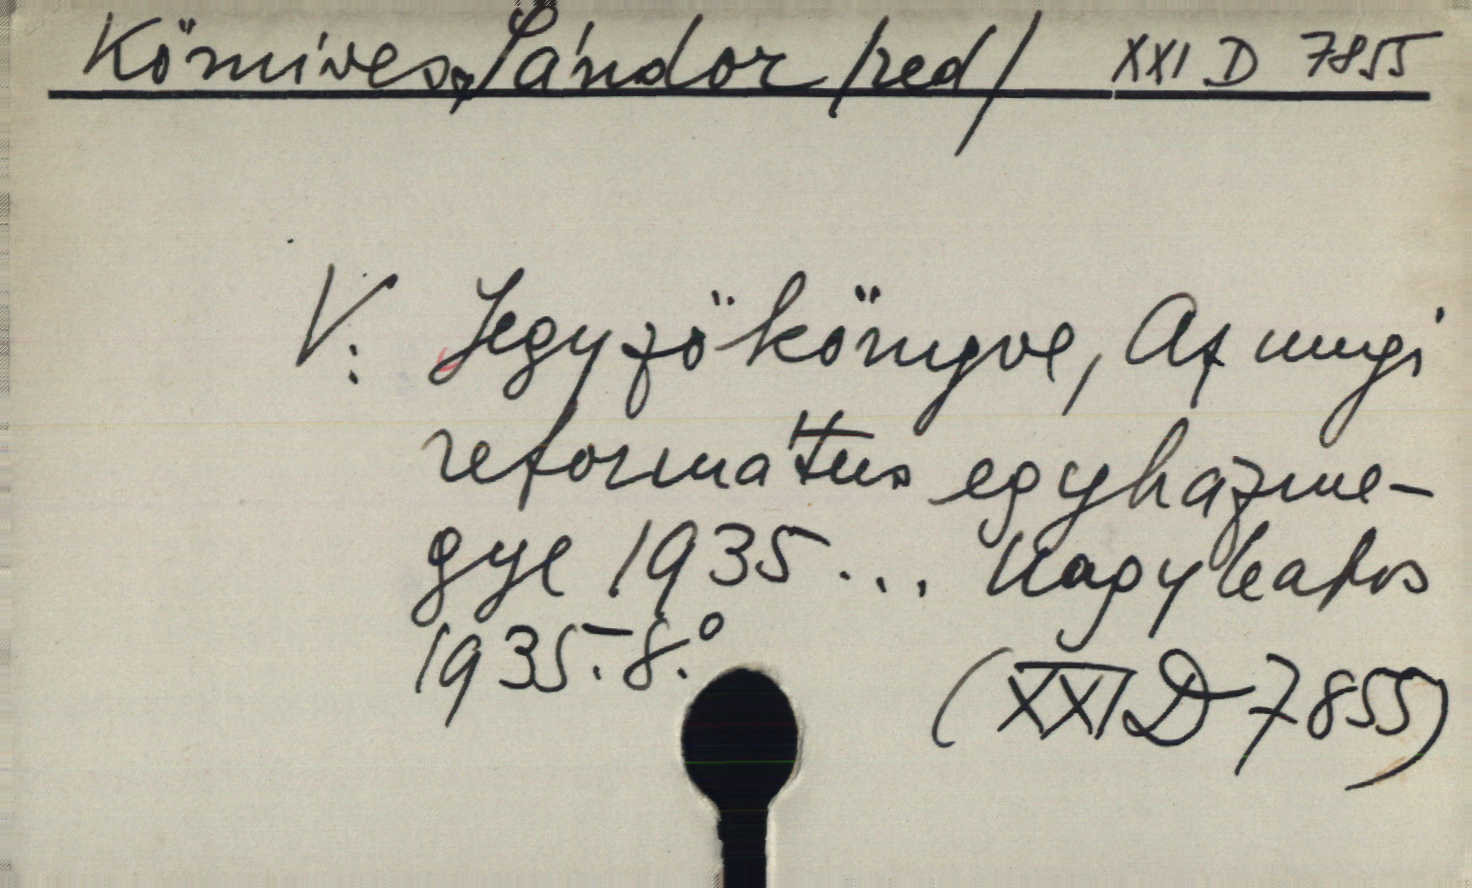 Kőmives, Sándor /red/ XXI D 7855
V: Jegyzőkönyve, Az ungi
református egyházme-
gye 1935... Nagykapos
1935.- 8.°
(XXI D 7855)